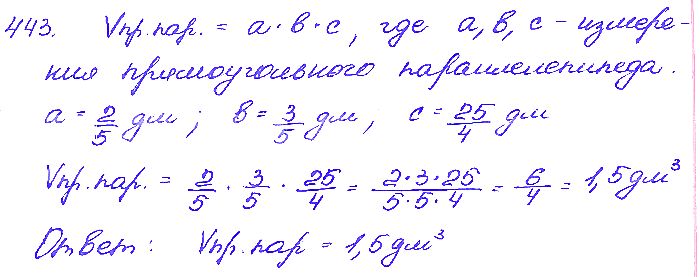 443. Vпр.пар. = a·в·c, где a, в, c - измере-
ния прямоугольного параллелепипеда.
a = 2/5 дм ; в = 3/5 дм ; c = 25/4 дм
Vпр.пар. = 2/5 · 3/5 · 25/4 = 2·3·25/5·5·4 = 6/4 = 1,5 дм³
Ответ : Vпр.пар = 1,5 дм³